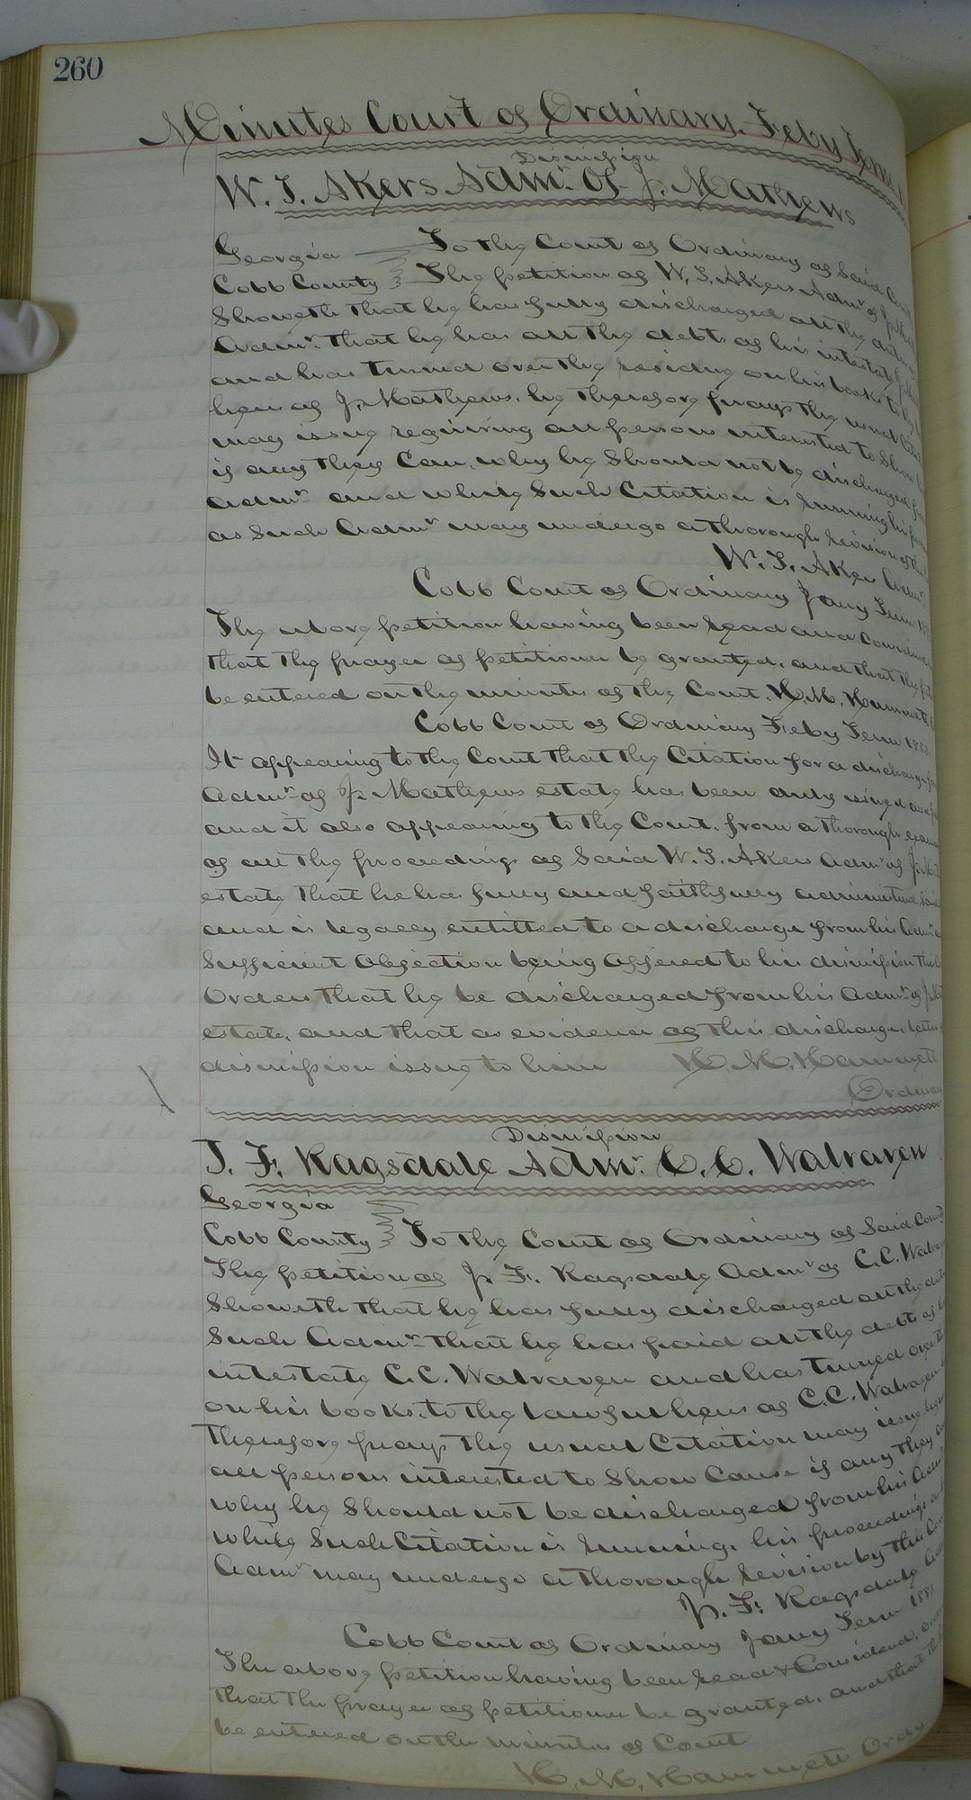 260
Minutes Court of Ordinary. Feby Term
Dismission
W. T. Akers Admr. Of J. Mathews
Georgia To the Court of Ordinary of Said
Cobb County The petition of W. T. Akers Admr of
Showeth that he has fully discharged all the
Admr. that he has all the debts of his intestate
and has turned over the residue on his books to
heirs of J. Mathews. he therefore prays the usual
may issue requiring all persons interested to Show
if any they Can. why he Should not be discharged
Admr and while Such Citation is running his
as Such Admr may undergo a thorough revision of
W. T. Akers Admr
Cobb Court of Ordinary Jany Term
The above petition having been read and
that the prayer of petitioner be granted. and that the
be entered on the minutes of the Court. H. M. Hammett
Cobb Court of Ordinary Feby Term 188
It appearing to the Court that the Citation for a discharge
Admr of J. Mathews estate has been duly
and it also appearing to the Court. from a thorough
of all the proceedings of Said W. T. Akers Admr of
estate that he has fully and faithfully administered
and is legally entitled to a discharge from his
Sufficient Objection being offered to his dimission
Orders that he be discharged from his Admr of
estate. and that as evidence of this discharge. letters
dismission issue to him H. M. Hammett
Ordinary
Dismission
J. F. Ragsdale Admr. C. C. Walraven
Georgia
Cobb County To the Court of Ordinary of Said County
The petition of J. F. Ragsdale Admr of C. C.
Showeth that he has fully discharged all the
Such Admr that he has paid all the debts of
intestate C. C. Walraven and has turned over
on his books. to the lawful heirs of C. C. Walraven
therefore prays the usual Citation may issue
all persons interested to Show Cause if any they
why he Should not be discharged from his
while Such Citation is running. his proceedings
Admr may undergo a thorough revision by this
J. F. Ragsdale
Cobb Court of Ordinary Jany Term 188
The above petition having been read & Considered.
that the prayer of petitioner be granted. and that
be entered on the minutes of Court
H. M. Hammett Ordy